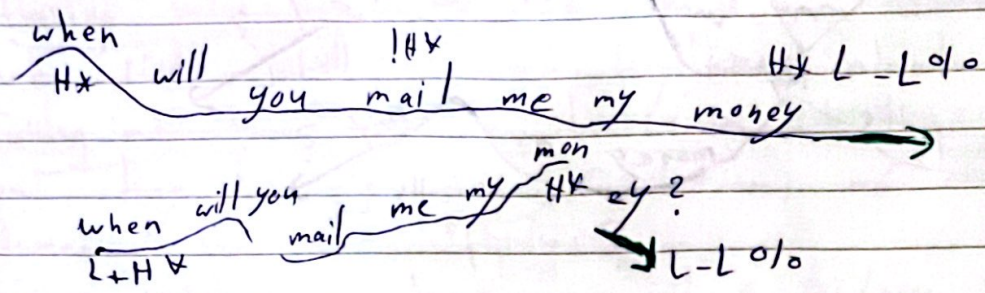 when will you mail me my money
H* !H* H* L-L%
when will you mail me my money?
L+H* H* L-L%